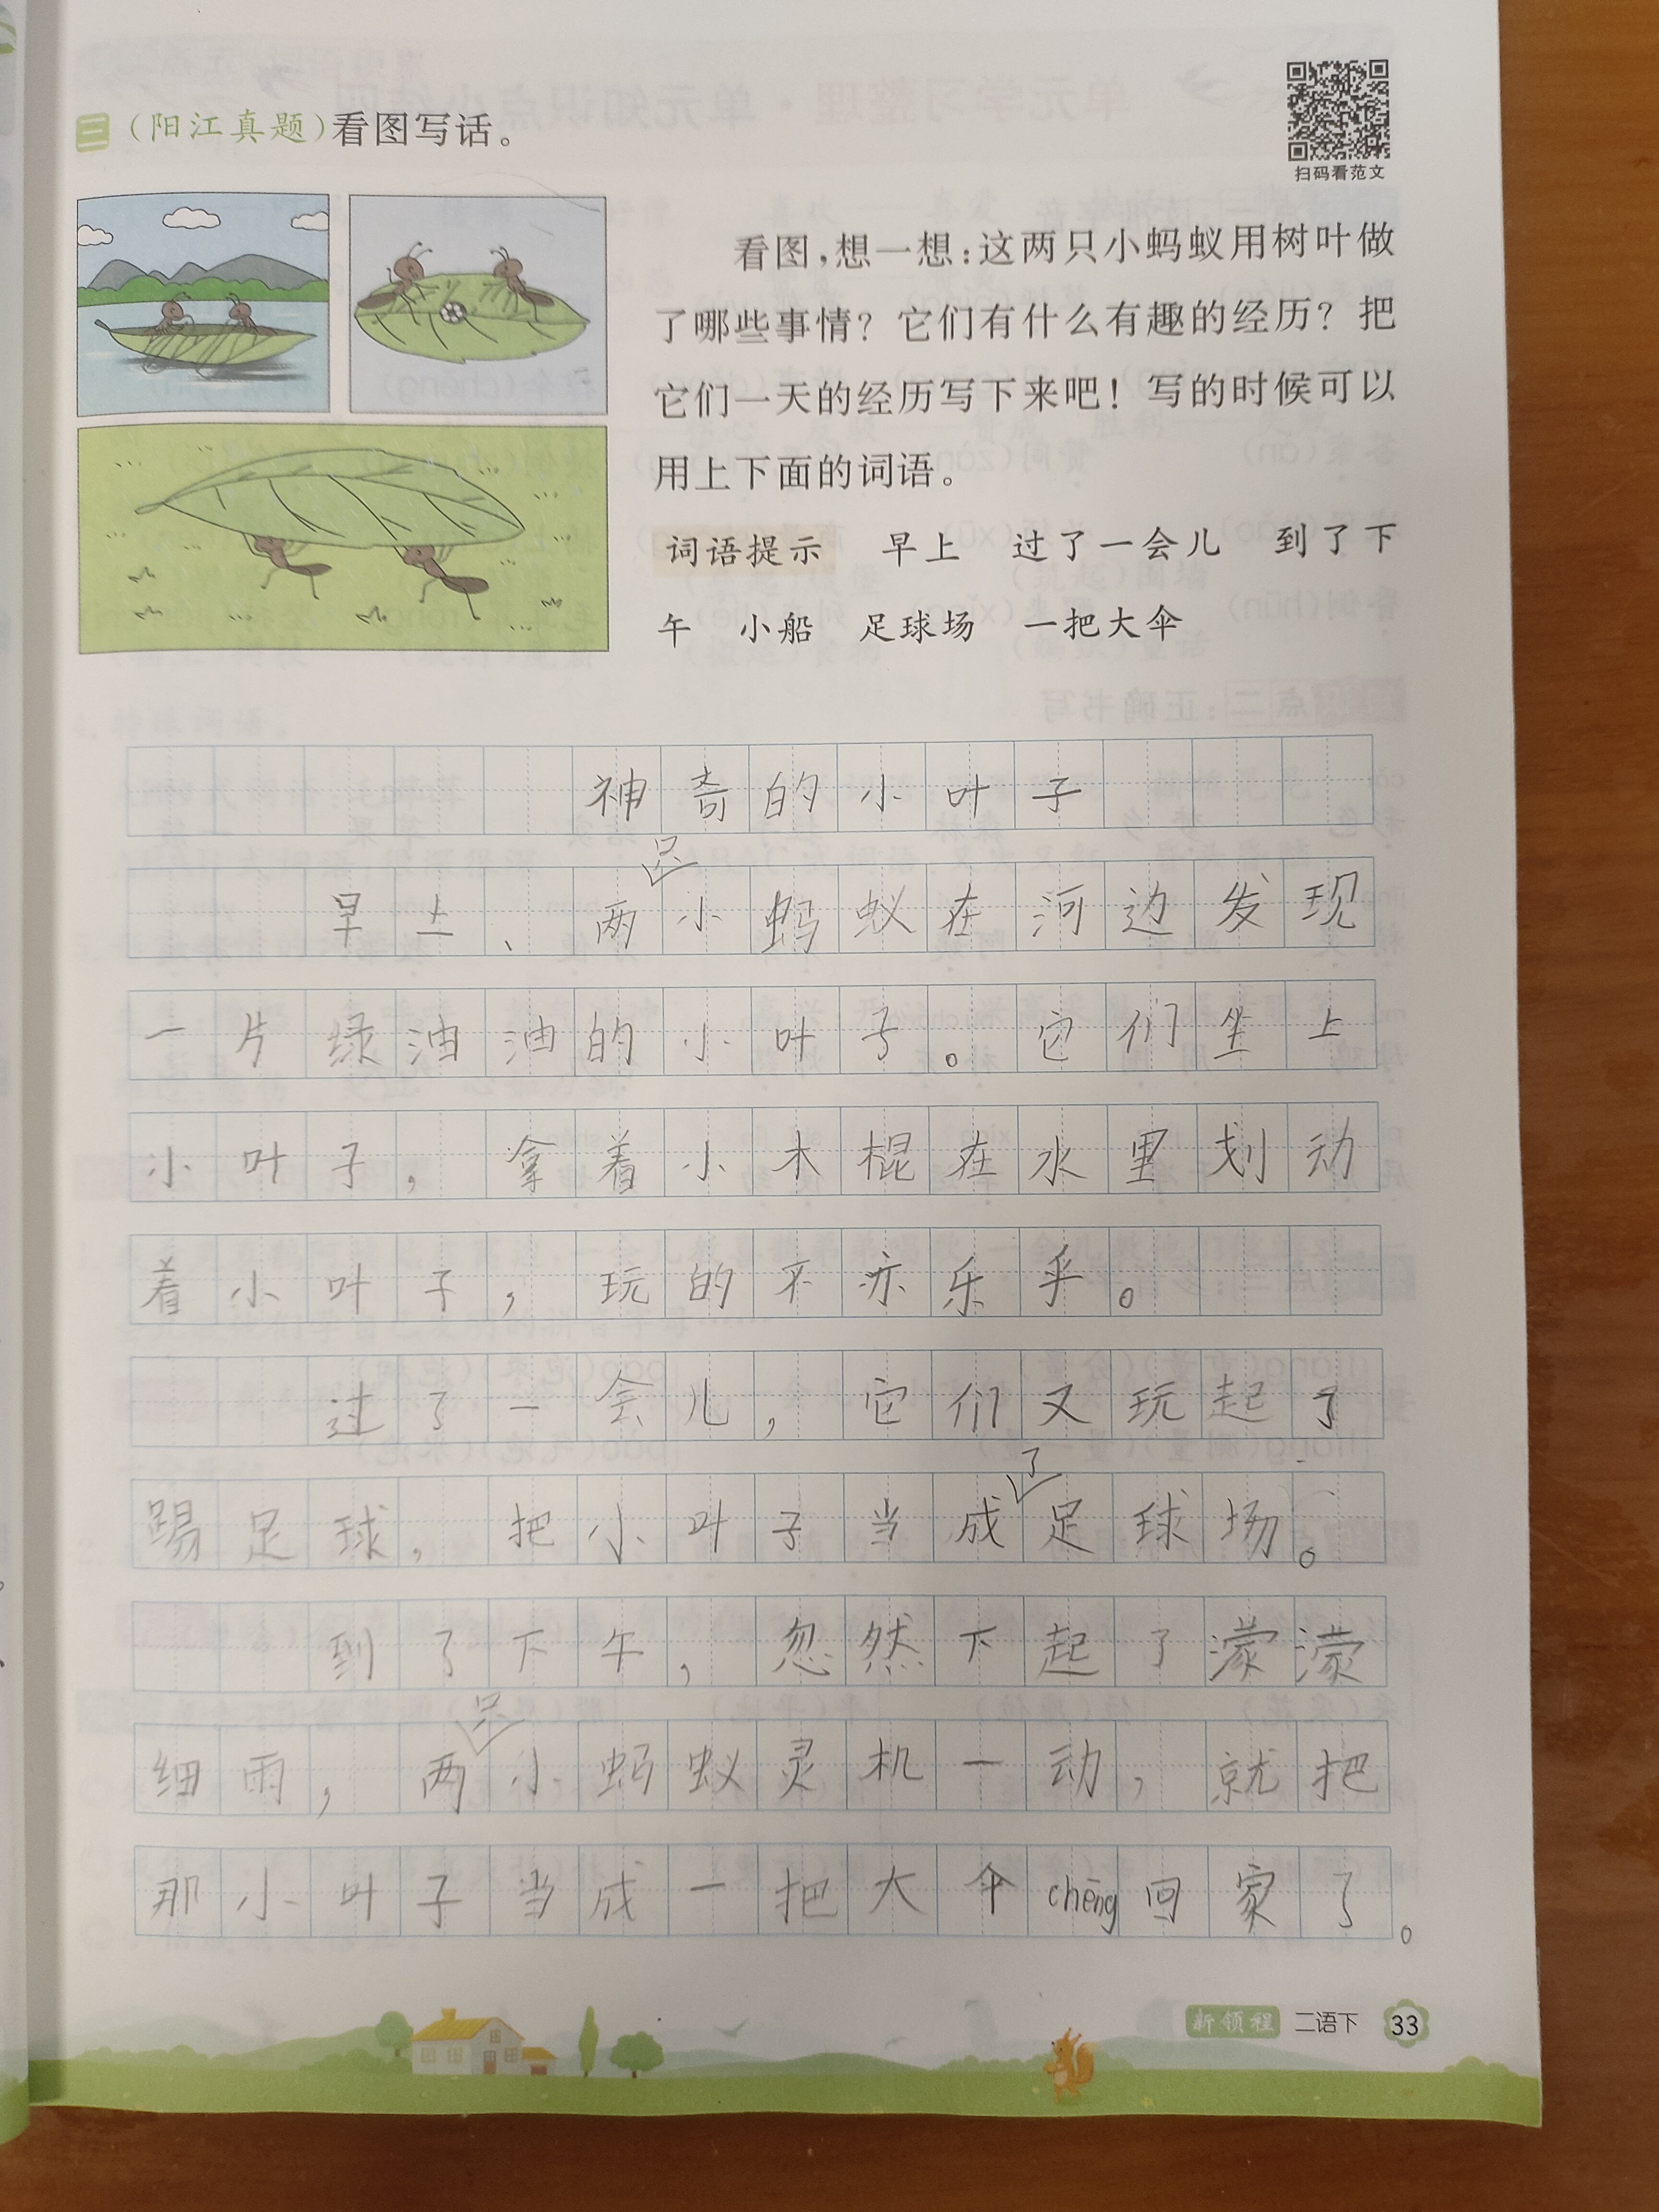 三 (阳江真题)看图写话。
扫码看范文
看图,想一想:这两只小蚂蚁用树叶做
了哪些事情?它们有什么有趣的经历?把
它们一天的经历写下来吧!写的时候可以
用上下面的词语。
词语提示 早上 过了一会儿 到了下
午 小船 足球场 一把大伞
神奇的小叶子
早上、两只小蚂蚁在河边发现
一片绿油油的小叶子。它们坐上
小叶子,拿着小木棍在水里划动
着小叶子,玩的不亦乐乎。
过了一会儿,它们又玩起了
踢足球,把小叶子当成了足球场。
到了下午,忽然下起了濛濛
细雨,两只小蚂蚁灵机一动,就把
那小叶子当成一把大伞chēng回家了。
新领程 二语下 33